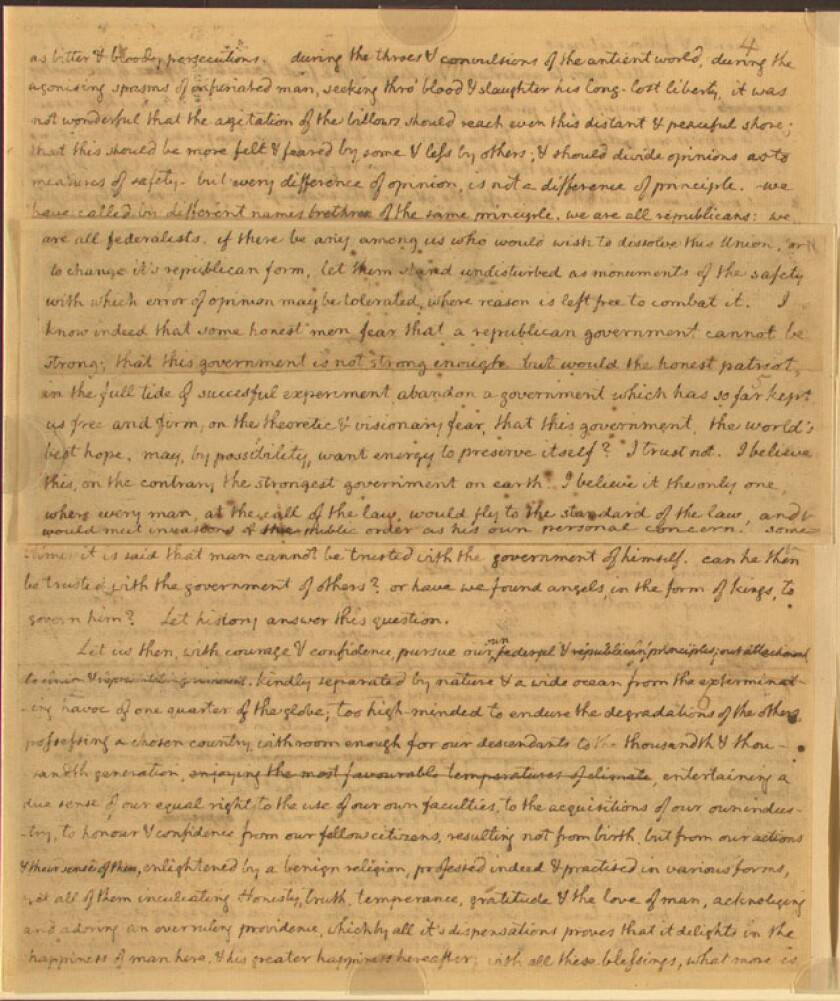 4
as bitter & bloody persecutions. during the throes & convulsions of the antient world, during the
agonising spasms of infuriated man, seeking thro' blood & slaughter his long-lost liberty, it was
not wonderful that the agitation of the billows should reach even this distant & peaceful shore;
that this should be more felt & feared by some & less by others; & should divide opinions as to
measures of safety. but every difference of opinion, is not a difference of principle. we
have called by different names brethren of the same principle. we are all republicans: we
are all federalists. if there be any among us who would wish to dissolve this Union, or
to change it's republican form, let them stand undisturbed as monuments of the safety
with which error of opinion may be tolerated, where reason is left free to combat it. I
know indeed that some honest men fear that a republican government cannot be
strong; that this government is not strong enough. but would the honest patriot,
in the full tide of succesful experiment abandon a government which has so far kept
us free and firm, on the theoretic & visionary fear, that this government, the world's
best hope, may, by possibility, want energy to preserve itself? I trust not. I believe
this, on the contrary, the strongest government on earth. I believe it the only one,
where every man, at the call of the law, would fly to the standard of the law, and
would meet invasions of the public order as his own personal concern. some-
times it is said that man cannot be trusted with the government of himself. can he then
be trusted with the government of others? or have we found angels, in the form of kings, to
govern him? Let history answer this question.
Let us then, with courage & confidence, pursue our own federal & republican principles; our attachment
to union & representative government. kindly separated by nature & a wide ocean from the exterminat-
-ing havoc of one quarter of the globe; too high-minded to endure the degradations of the others,
possessing a chosen country, with room enough for our descendants to the thousandth & thou-
-sandth generation, enjoying the most favourable temperatures of climate, entertaining a
due sense of our equal right, to the use of our own faculties, to the acquisitions of our own indus-
-try, to honour & confidence from our fellow citizens, resulting not from birth, but from our actions
& their sense of them, enlightened by a benign religion, professed indeed & practised in various forms,
yet all of them inculcating honesty, truth, temperance, gratitude & the love of man, acknoleging
and adoring an overruling providence, which by all it's dispensations proves that it delights in the
happiness of man here, & his greater happiness hereafter; with all these blessings, what more is